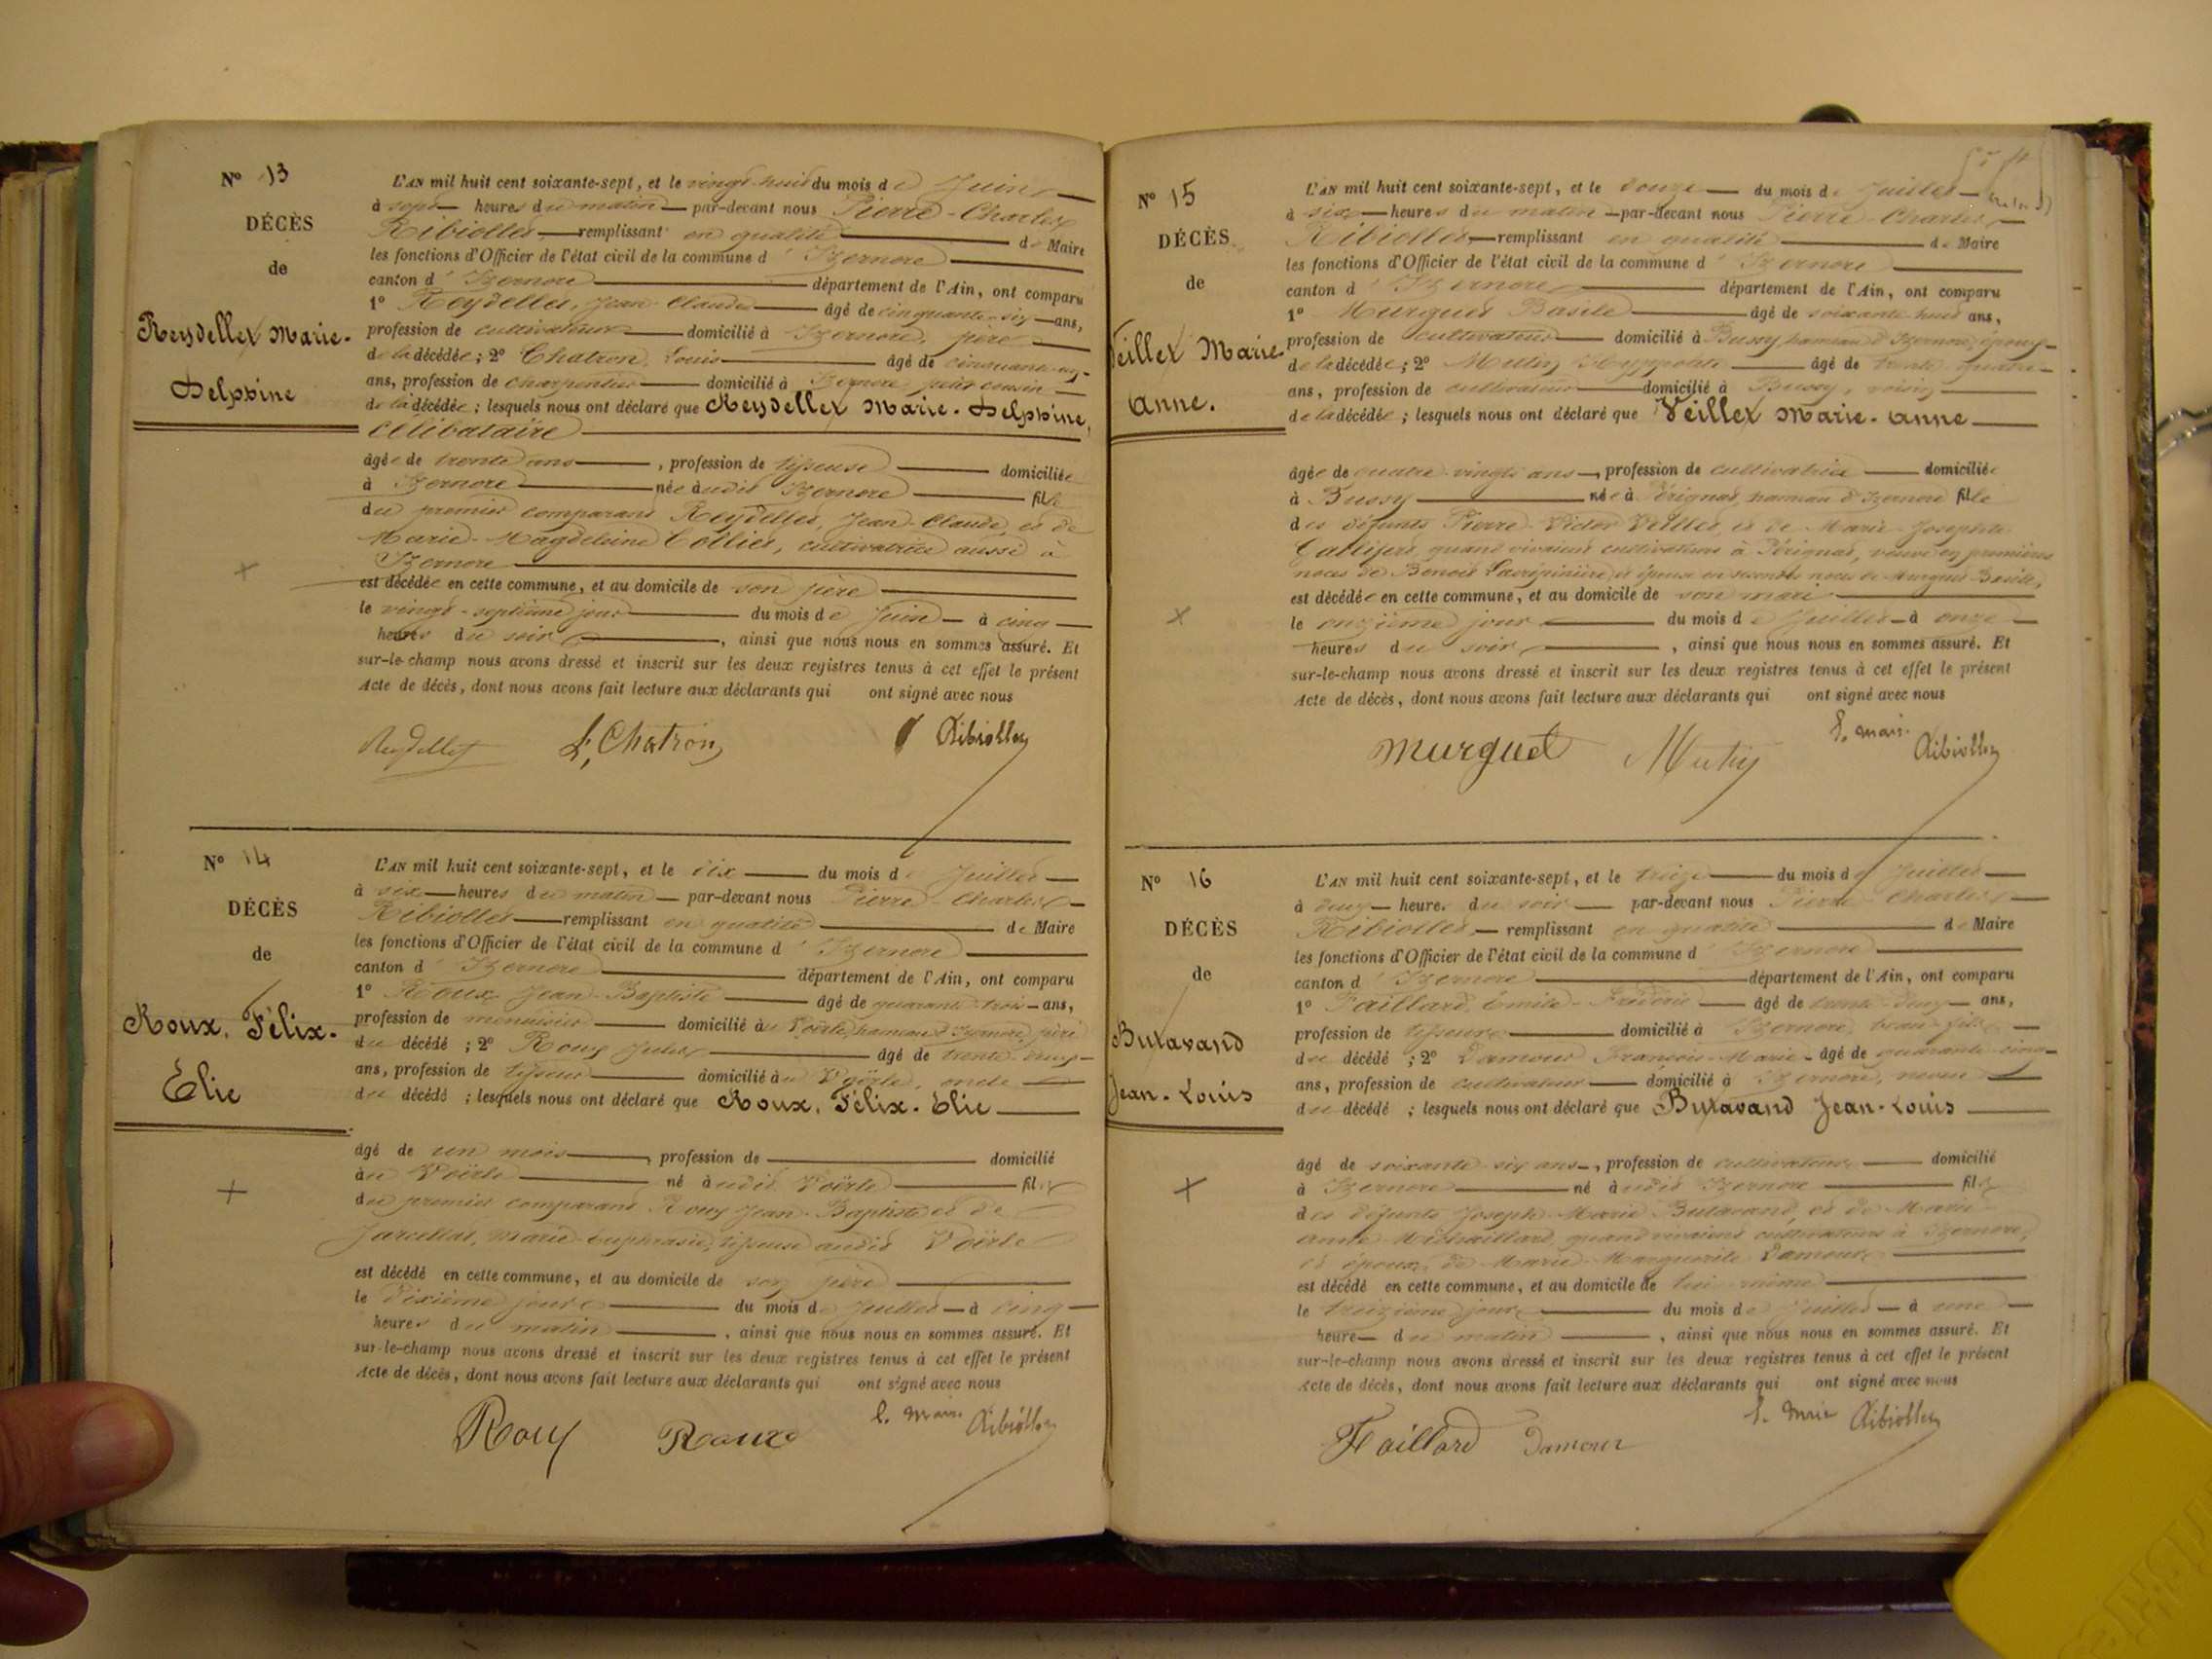 N° 13
DÉCÈS
de
Reydellet Marie-
Delphine
L'AN mil huit cent soixante-sept, et le vingt-huit du mois de Juin
à sept heures du matin par-devant nous Pierre-Charles
Ribiollet remplissant en qualité de Maire
les fonctions d'Officier de l'état civil de la commune d'Izernore
canton d'Izernore département de l'Ain, ont comparu
1° Reydellet, Jean-Claude âgé de cinquante-six ans,
profession de cultivateur domicilié à Izernore, père
de la décédée ; 2° Chatron, Louis âgé de cinquante-un
ans, profession de charpentier domicilié à Izernore, petit cousin
de la décédée ; lesquels nous ont déclaré que Reydellet Marie-Delphine,
célibataire
âgée de trente ans, profession de tisseuse domiciliée
à Izernore née audit Izernore fille
du premier comparant Reydellet, Jean-Claude, et de
Marie-Magdeleine Colliet, cultivatrice aussi à
Izernore
est décédée en cette commune, et au domicile de son père
le vingt-septième jour du mois de Juin à cinq
heures du soir, ainsi que nous nous en sommes assuré. Et
sur-le-champ nous avons dressé et inscrit sur les deux registres tenus à cet effet le présent
Acte de décès, dont nous avons fait lecture aux déclarants qui ont signé avec nous
Reydellet L. Chatron Ribiollet
N° 14
DÉCÈS
de
Roux, Félix-
Elie
L'AN mil huit cent soixante-sept, et le dix du mois de Juillet
à six heures du matin par-devant nous Pierre-Charles
Ribiollet remplissant en qualité de Maire
les fonctions d'Officier de l'état civil de la commune d'Izernore
canton d'Izernore département de l'Ain, ont comparu
1° Roux Jean-Baptiste âgé de quarante-trois ans,
profession de menuisier domicilié au Voërle, hameau d'Izernore, père
du décédé ; 2° Roux Jules âgé de trente-deux
ans, profession de tisseur domicilié au Voërle, oncle
du décédé ; lesquels nous ont déclaré que Roux, Félix-Elie
âgé de un mois, profession de domicilié
au Voërle né audit Voërle fils
du premier comparant Roux Jean-Baptiste et de
Jarcellat, Marie-Euphrasie, tisseuse audit Voërle
est décédé en cette commune, et au domicile de son père
le dixième jour du mois de Juillet à cinq
heures du matin, ainsi que nous nous en sommes assuré. Et
sur-le-champ nous avons dressé et inscrit sur les deux registres tenus à cet effet le présent
Acte de décès, dont nous avons fait lecture aux déclarants qui ont signé avec nous
Roux Roux l. maire Ribiollet
N° 15
DÉCÈS
de
Veillet Marie-
Anne.
L'AN mil huit cent soixante-sept, et le douze du mois de Juillet
à six heures du matin par-devant nous Pierre-Charles
Ribiollet remplissant en qualité de Maire
les fonctions d'Officier de l'état civil de la commune d'Izernore
canton d'Izernore département de l'Ain, ont comparu
1° Murguet Basile âgé de soixante-huit ans,
profession de cultivateur domicilié à Bussy hameau d'Izernore, époux
de la décédée ; 2° Hyppolite âgé de trente-quatre
ans, profession de cultivateur domicilié à Bussy, voisin
de la décédée ; lesquels nous ont déclaré que Veillet Marie-Anne
âgée de quatre-vingts ans, profession de cultivatrice domiciliée
à Bussy née à Pérignat, hameau d'Izernore fille
des défunts Pierre-Victor Veillet, et de Marie-Josephte
quand vivaient cultivateurs à Pérignat, veuve en premières
noces de Benoit et épouse en secondes noces de Murguet Basile,
est décédée en cette commune, et au domicile de son mari
le onzième jour du mois de Juillet à onze
heures du soir, ainsi que nous nous en sommes assuré. Et
sur-le-champ nous avons dressé et inscrit sur les deux registres tenus à cet effet le présent
Acte de décès, dont nous avons fait lecture aux déclarants qui ont signé avec nous
Murguet l. maire Ribiollet
N° 16
DÉCÈS
de
Butavand
Jean-Louis
L'AN mil huit cent soixante-sept, et le treize du mois de Juillet
à deux heures du soir par-devant nous Pierre-Charles
Ribiollet, remplissant en qualité de Maire
les fonctions d'Officier de l'état civil de la commune d'Izernore
canton d'Izernore département de l'Ain, ont comparu
1° Faillard, Emile-Frédéric âgé de trente-deux ans,
profession de tisseur domicilié à Izernore, beau-fils
du décédé ; 2° Damour François-Marie âgé de quarante-cinq
ans, profession de cultivateur domicilié à Izernore, neveu
du décédé ; lesquels nous ont déclaré que Butavand Jean-Louis
âgé de soixante-six ans, profession de cultivateur domicilié
à Izernore né audit Izernore fils
des défunts Joseph-Marie Butavand, et de Marie-
Anne quand vivaient cultivateurs à Izernore,
et époux de Marie-Marguerite Damour
est décédé en cette commune, et au domicile de lui-même
le treizième jour du mois de Juillet à une
heure du matin, ainsi que nous nous en sommes assuré. Et
sur-le-champ nous avons dressé et inscrit sur les deux registres tenus à cet effet le présent
Acte de décès, dont nous avons fait lecture aux déclarants qui ont signé avec nous
Faillard Damour l. maire Ribiollet